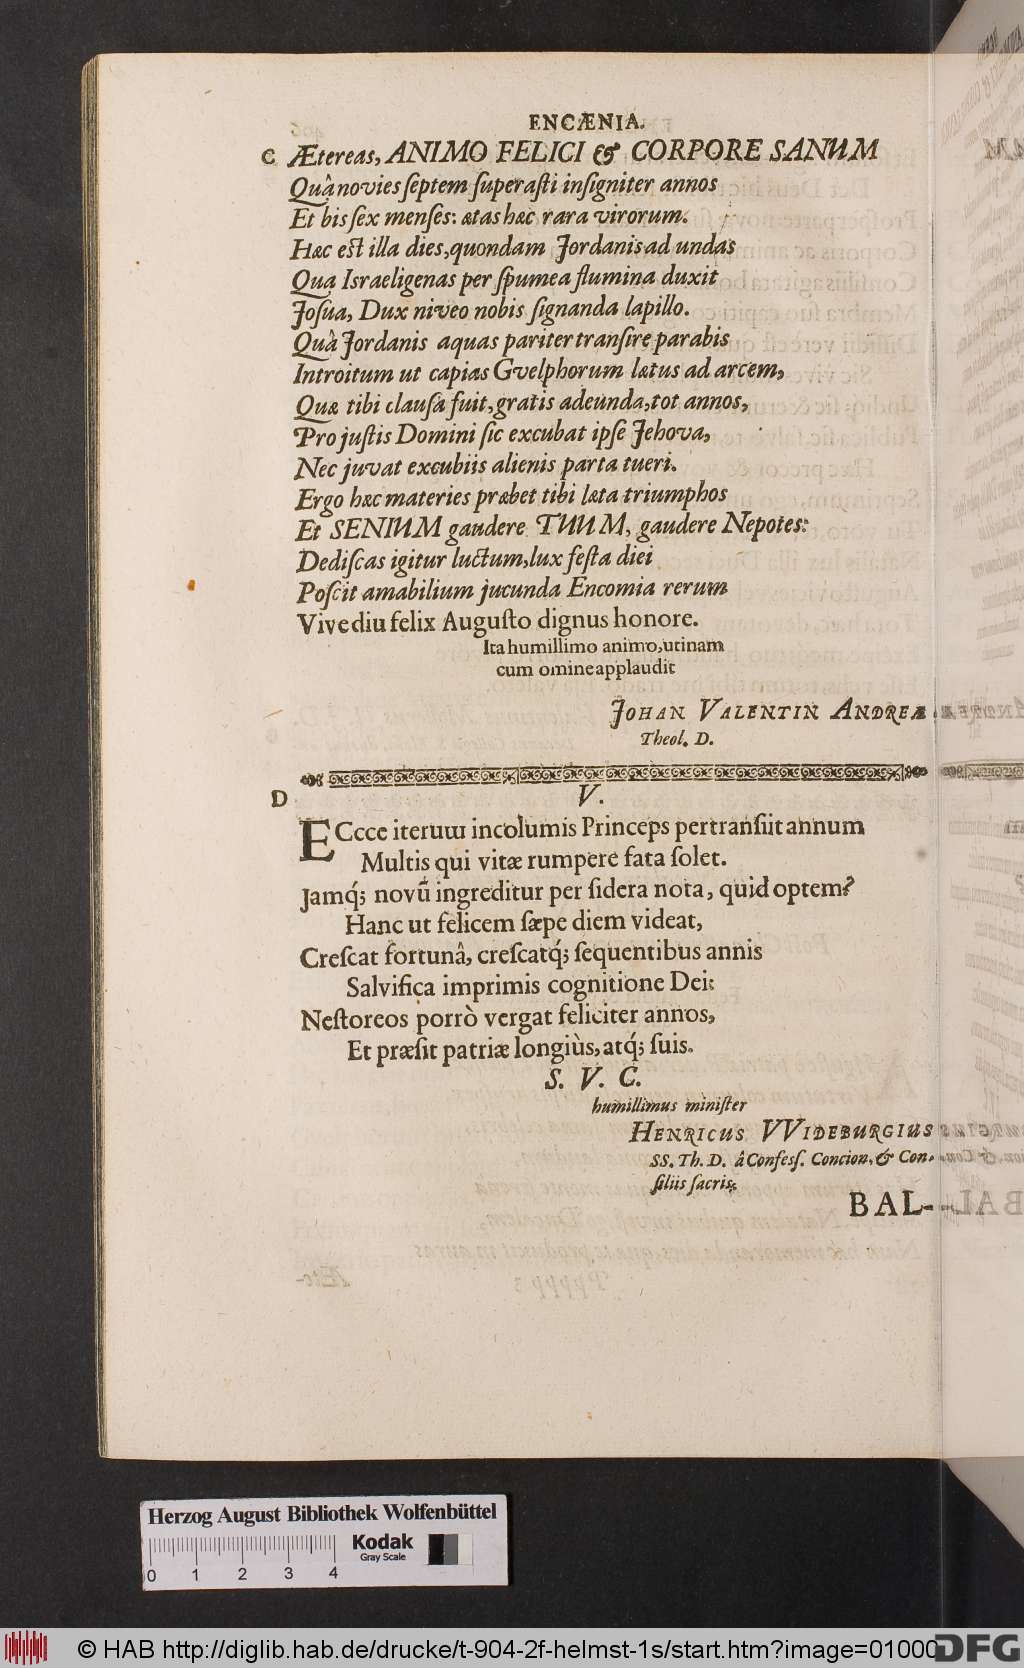 ENCÆNIA.
C Ætereas, ANIMO FELICI & CORPORE SANUM
Quâ novies ſeptem ſuperaſti inſigniter annos
Et bis ſex menſes: ætas hæc rara virorum.
Hæc eſt illa dies, quondam Jordanis ad undas
Qua Israeligenas per ſpumea flumina duxit
Joſua, Dux niveo nobis ſignanda lapillo.
Quâ Jordanis aquas pariter tranſire parabis
Introitum ut capias Gvelphorum lætus ad arcem,
Quæ tibi clauſa fuit, gratis adeunda, tot annos,
Pro juſtis Domini ſic excubat ipſe Jehova,
Nec juvat excubiis alienis parta tueri.
Ergo hæc materies præbet tibi læta triumphos
Et SENIUM gaudere TUUM, gaudere Nepotes:
Dediſcas igitur luctum, lux feſta diei
Poſcit amabilium jucunda Encomia rerum
Vive diu felix Auguſto dignus honore.
Ita humillimo animo, utinam
cum omine applaudit
JOHAN VALENTIN ANDREÆ
Theol. D.
D V.
ECcce iterum incolumis Princeps pertranſiit annum
Multis qui vitæ rumpere fata ſolet.
Jamq́; novũ ingreditur per ſidera nota, quid optem?
Hanc ut felicem ſæpe diem videat,
Creſcat fortunâ, creſcatq́; ſequentibus annis
Salvifica imprimis cognitione Dei:
Neſtoreos porrò vergat feliciter annos,
Et præſit patriæ longiùs, atq́; ſuis.
S. V. C.
humillimus miniſter
HENRICUS VVIDEBURGIUS
SS. Th. D. â Confeſſ. Concion. & Con-
ſiliis ſacris.
BAL-
Herzog August Bibliothek Wolfenbüttel
Kodak
Gray Scale
0 1 2 3 4
© HAB http://diglib.hab.de/drucke/t-904-2f-helmst-1s/start.htm?image=01000
DFG